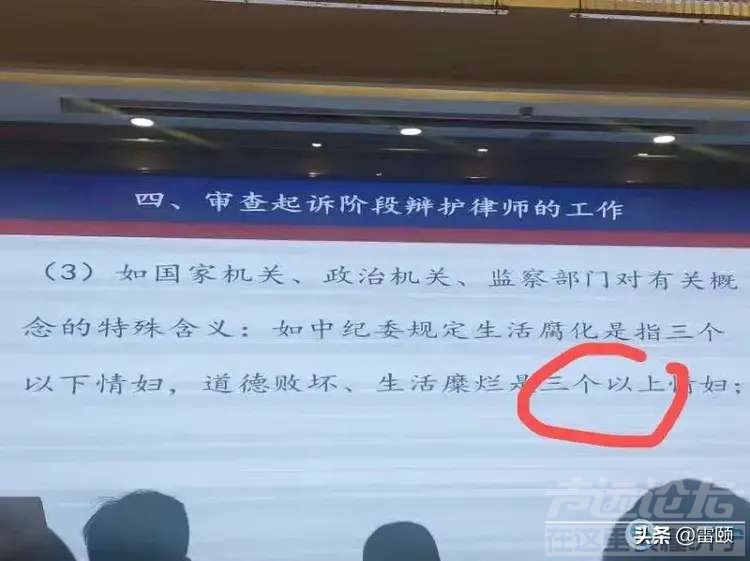 四、审查起诉阶段辩护律师的工作
（3）如国家机关、政治机关、监察部门对有关概
念的特殊含义：如中纪委规定生活腐化是指三个
以下情妇，道德败坏、生活糜烂是三个以上情妇；
声远论坛
头条 @雷颐